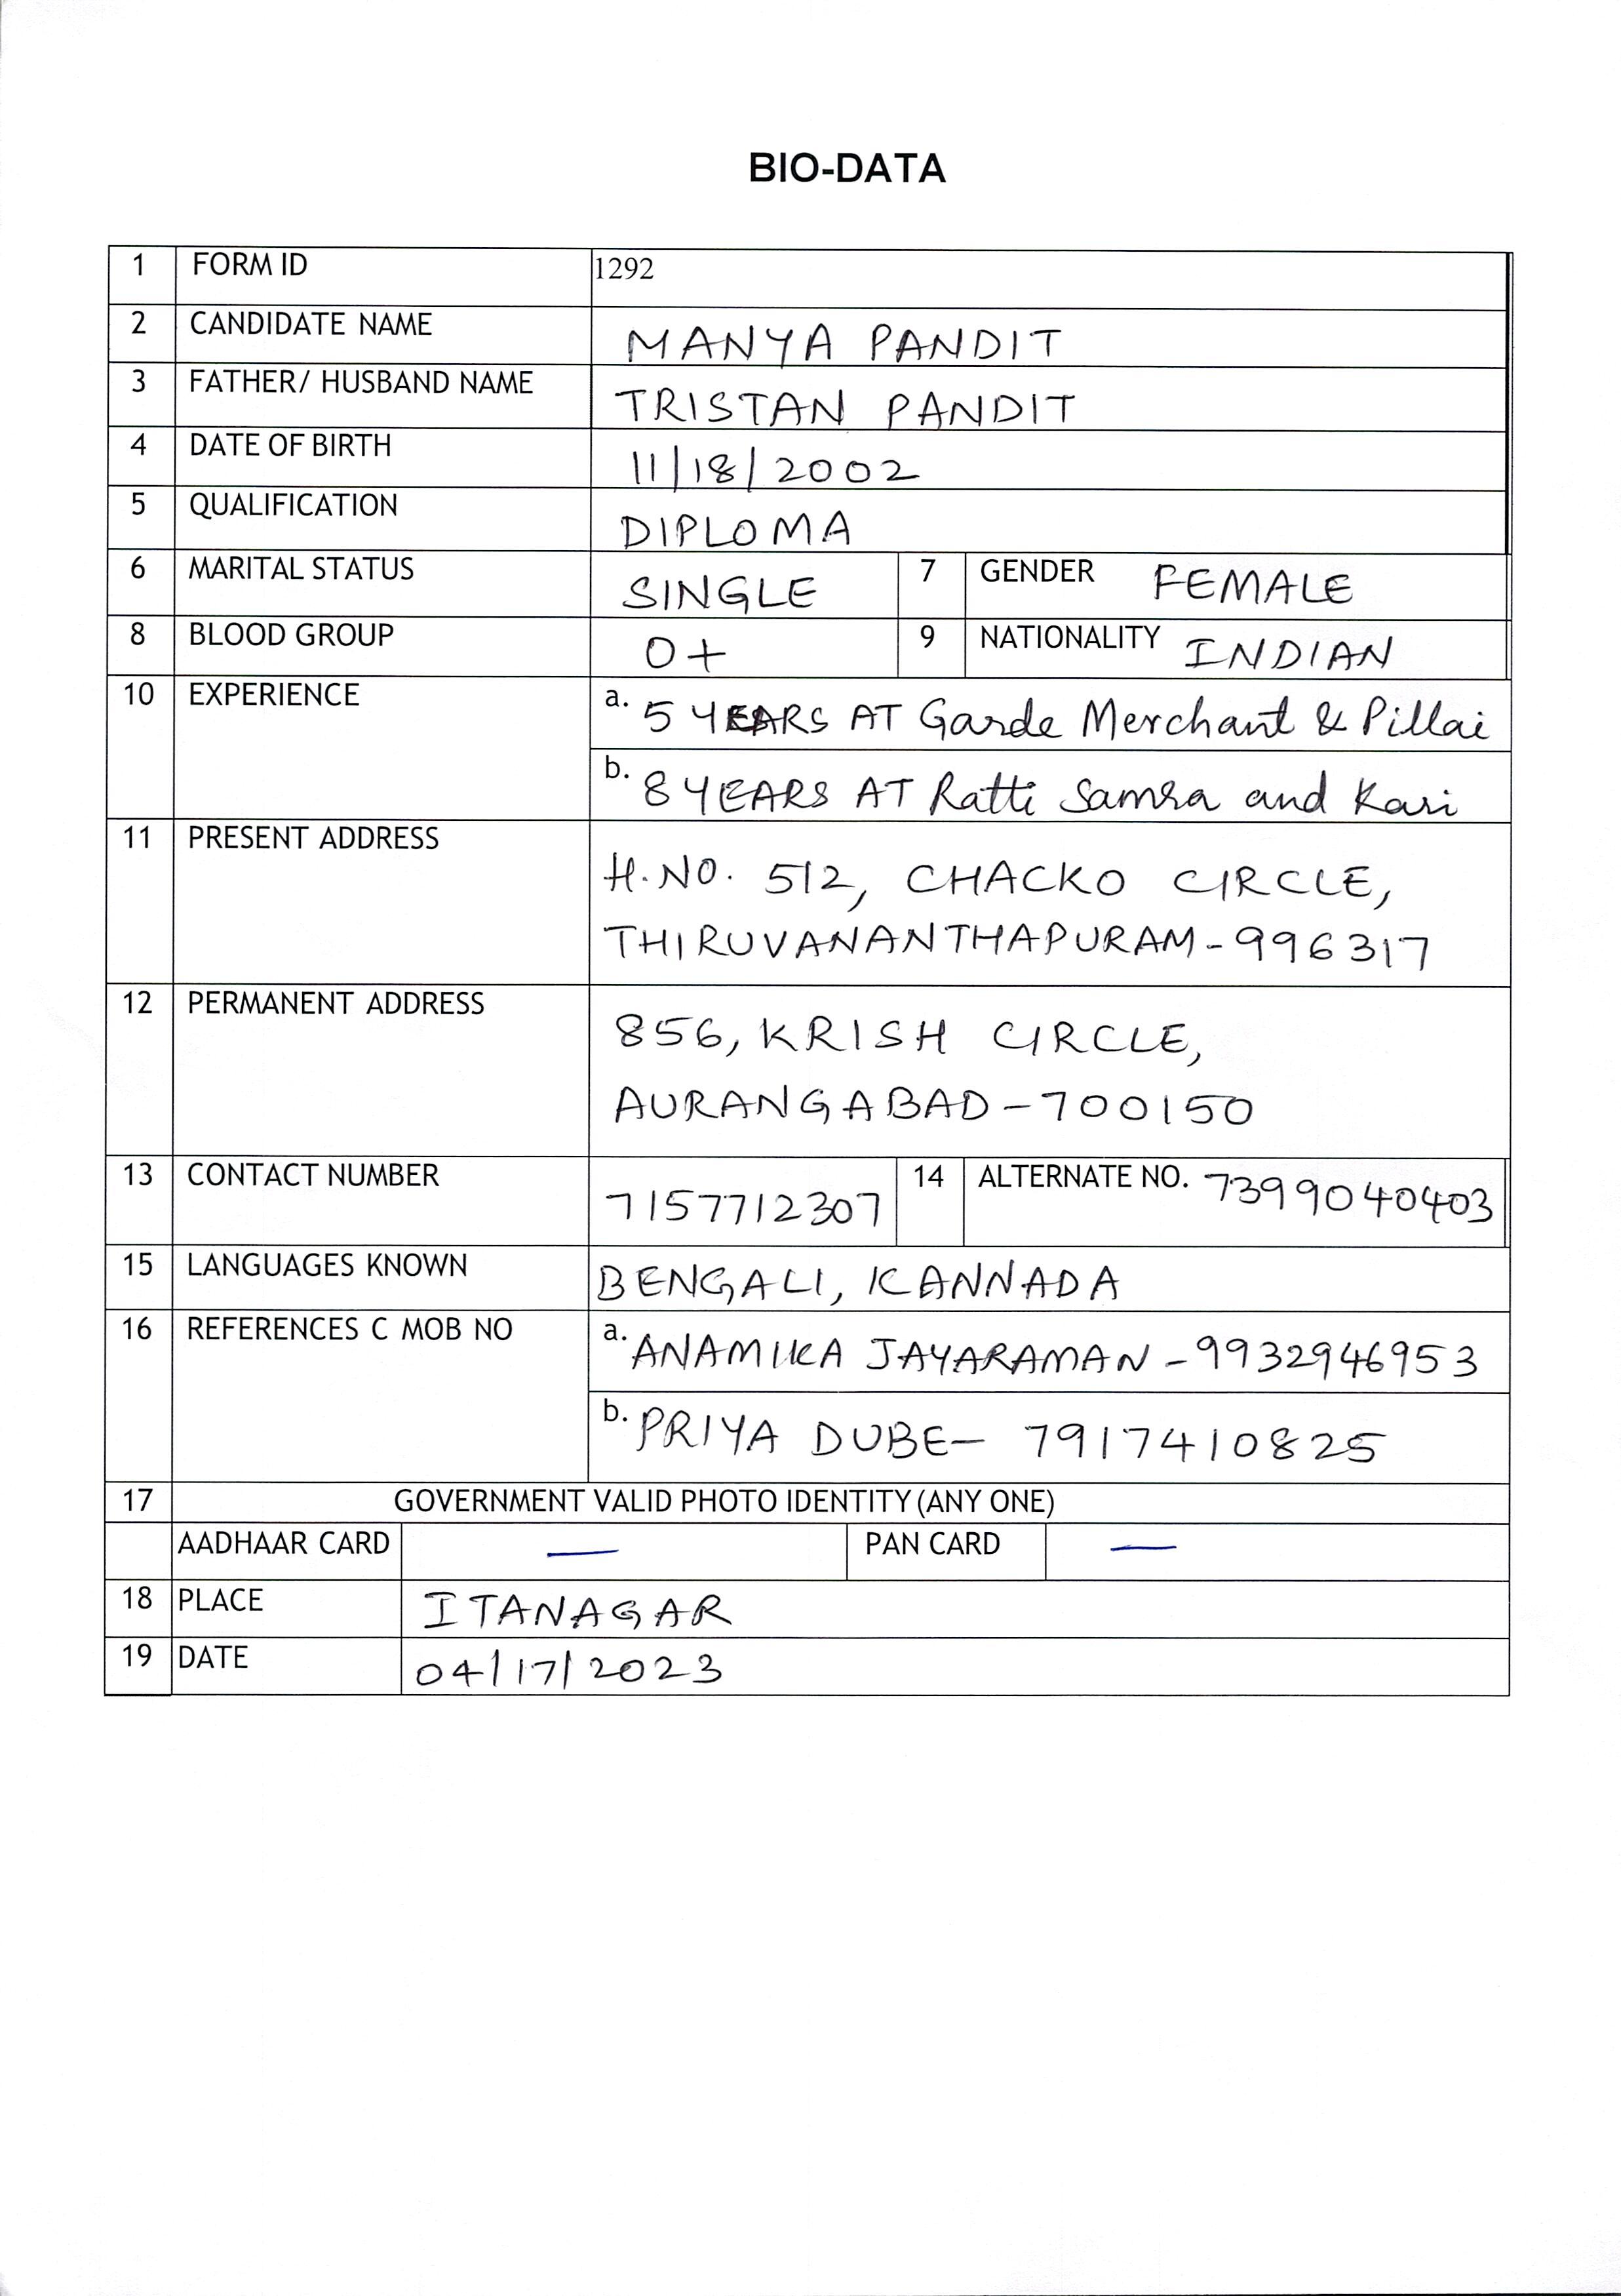 BIO-DATA
1 FORM ID 1292
2 CANDIDATE NAME MANYA PANDIT
3 FATHER/ HUSBAND NAME TRISTAN PANDIT
4 DATE OF BIRTH 11/18/2002
5 QUALIFICATION DIPLOMA
6 MARITAL STATUS SINGLE 7 GENDER FEMALE
8 BLOOD GROUP O+ 9 NATIONALITY INDIAN
10 EXPERIENCE a. 5 YEARS AT Garde Merchant & Pillai
b. 8 YEARS AT Ratti Samra and Kari
11 PRESENT ADDRESS H.NO. 512, CHACKO CIRCLE,
THIRUVANANTHAPURAM-996317
12 PERMANENT ADDRESS 856, KRISH CIRCLE,
AURANGABAD-700150
13 CONTACT NUMBER 7157712307 14 ALTERNATE NO. 7399040403
15 LANGUAGES KNOWN BENGALI, KANNADA
16 REFERENCES C MOB NO a. ANAMIKA JAYARAMAN - 9932946953
b. PRIYA DUBE- 7917410825
17 GOVERNMENT VALID PHOTO IDENTITY (ANY ONE)
AADHAAR CARD — PAN CARD —
18 PLACE ITANAGAR
19 DATE 04/17/2023